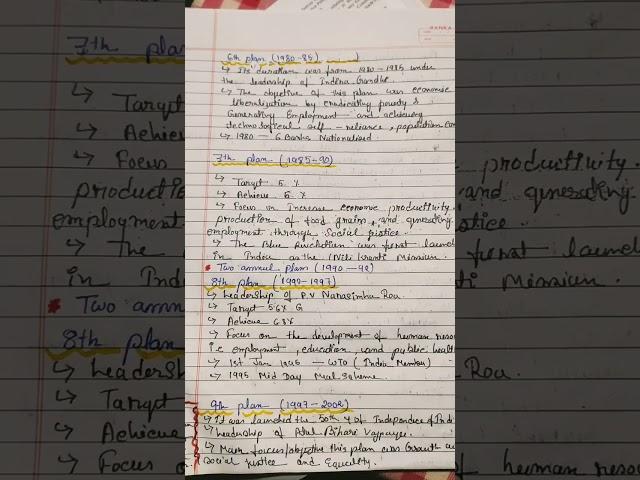 6th plan (1980-85)
↳ Its duration was from 1980-1985 under
the leadership of Indira Gandhi.
↳ The objetive of this plan was economic
liberalisation by eradicating poverty &
Generating Employment and achieving
technological self-reliance, population con
↳ 1980 - 6 Banks Nationalised.
7th plan (1985-90)
↳ Target 5 %
↳ Achieve 6 %
↳ Focus on Increase economic productivity.
production of food grains, and generating
employment through social justice
↳ The Blue Revolution was first launch
in India as the Nili kranti Mission.
* Two annual plan (1990-92)
8th plan (1992-1997)
↳ Leadership of P.V Narasimha Rao.
↳ Target 5.6% G
↳ Achieve 6.8%
↳ Focus on the development of human reso
i.e employment, education, and public healt
↳ 1st Jan 1995 - WTO (India Member)
↳ 1995 Mid Day Meal Scheme.
9th plan (1997-2002)
↳ It was launched the 50th Y of Independence of Indi
↳ leadership of Atal Bihari Vajpayee.
↳ Main focus/objective this plan was Growth
social justice and Equality.
7th plan
↳ Target
↳ Achieve
↳ Focus
production
employment
↳ The
in Ind
* Two ann
8th plan
↳ leadersh
↳ Target
↳ Achieve
↳ Focus
productivity.
and generating
launch
Mission.
Rao.
of human reso